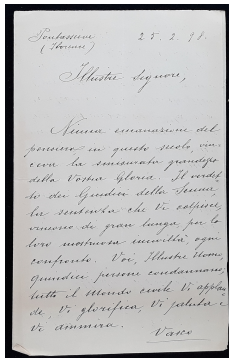 Pontassieve 25.2.98.
(Firenze)
Illustre Signore,
Niuna emanazione del
pensiero in questo secolo, vin-
ceva la smisurata grandezza
della Vostra Gloria. Il verdet-
to dei Giudici della Senna,
la sentenza che Vi colpisce,
vincono di gran lunga, per la
loro mostruosa inciviltà, ogni
confronto. Voi, Illustre Uomo,
quindici persone condannarono,
tutto il Mondo civile Vi applau-
de, Vi glorifica, Vi saluta e
Vi ammira.
Vasco